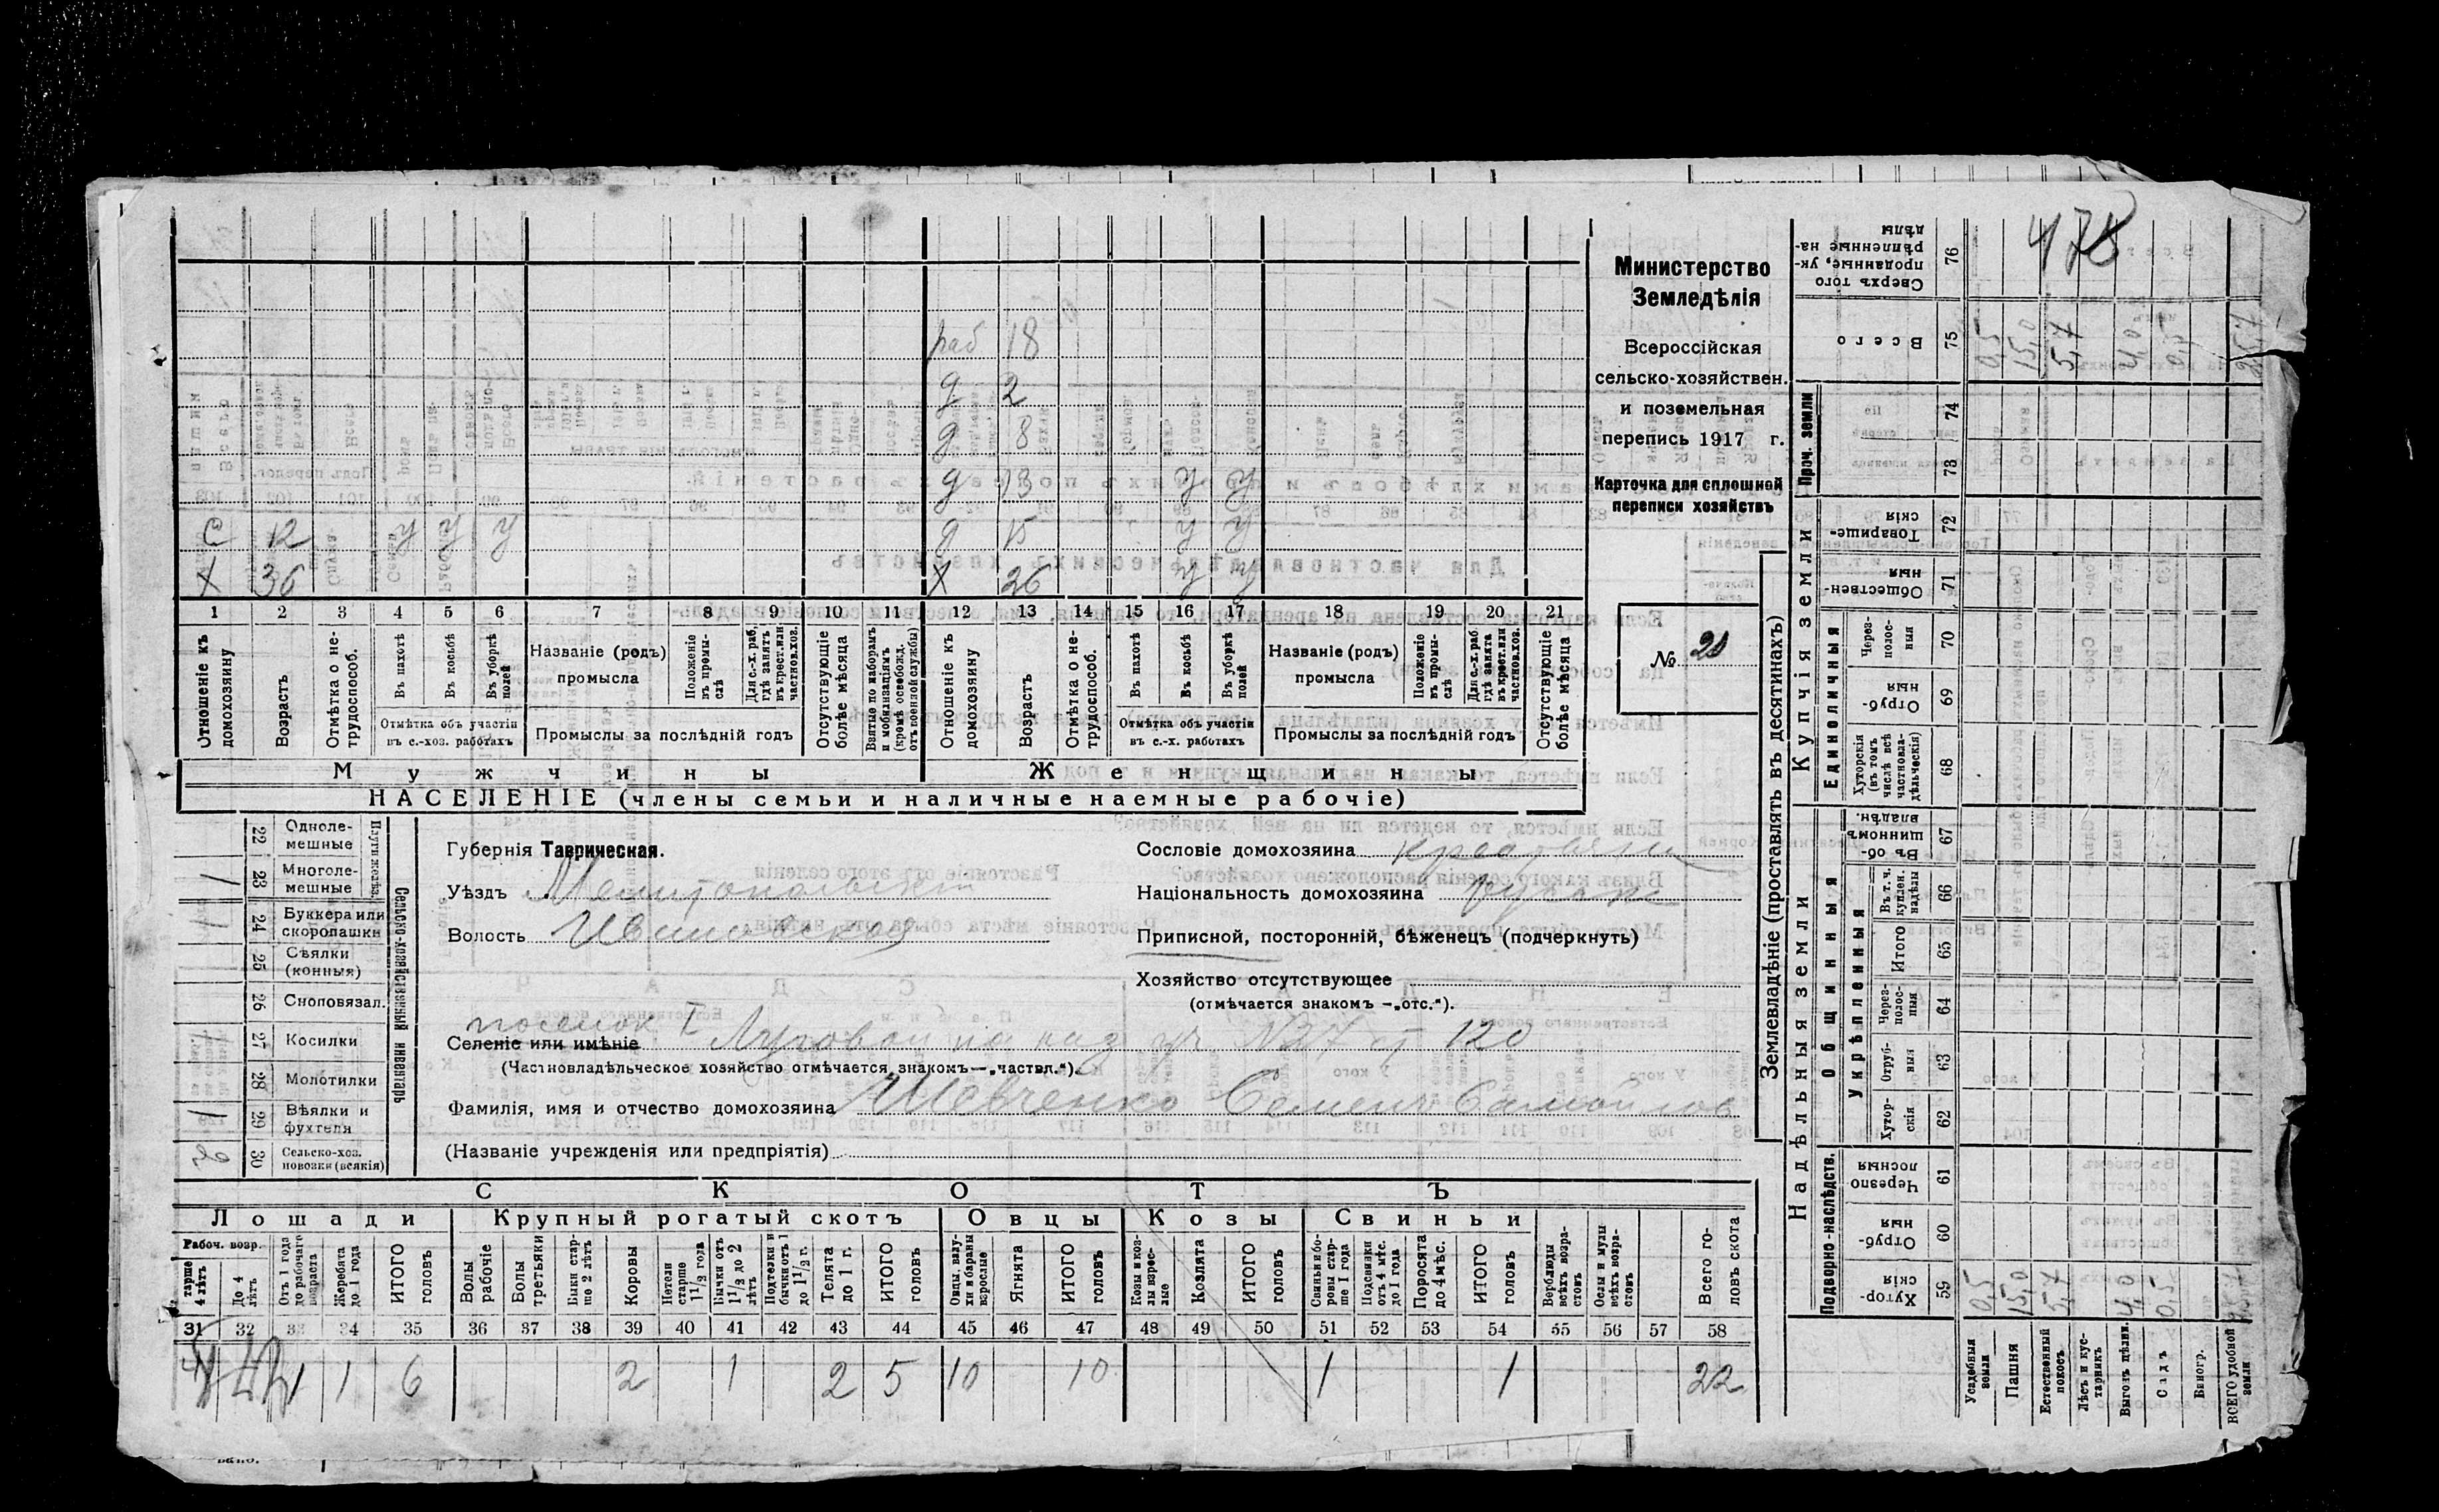 478
Министерство
Земледѣлія
Всероссійская
сельско-хозяйствен.
и поземельная
перепись 1917 г.
Карточка для сплошной
переписи хозяйствъ
№ 20
раб 18
д 2
д 8
д 13 у у
С 12 у у у д 15 у у
Х 36 Х 26 у у
1 2 3 4 5 6 7 8 9 10 11 12 13 14 15 16 17 18 19 20 21
Отношеніе къ домохозяину
Возрастъ
Отмѣтка о нетрудоспособ.
Въ пахотѣ
Въ косьбѣ
Въ уборкѣ полей
Отмѣтка объ участіи въ с.-хоз. работахъ
Названіе (родъ) промысла
Положеніе въ промыслѣ
Для с.-х. раб. гдѣ занятъ въ крест. или частнов. хоз.
Промыслы за послѣдній годъ
Отсутствующіе болѣе мѣсяца
Взятые по наборамъ и мобилизаціямъ (кромѣ освобожд. отъ военной службы)
Отношеніе къ домохозяину
Возрастъ
Отмѣтка о нетрудоспособ.
Въ пахотѣ
Въ косьбѣ
Въ уборкѣ полей
Отмѣтка объ участіи въ с.-х. работахъ
Названіе (родъ) промысла
Положеніе въ промыслѣ
Для с.-х. раб. гдѣ занята въ крест. или частнов. хоз.
Промыслы за послѣдній годъ
Отсутствующіе болѣе мѣсяца
Мужчины Женщины
НАСЕЛЕНІЕ (члены семьи и наличные наемные рабочіе)
Сельско-хозяйственный инвентарь
Плуги желѣз.
22 Однолемешные
23 Многолемешные 1
24 Буккера или скоропашки 1
25 Сѣялки (конныя)
26 Сноповязал.
27 Косилки
28 Молотилки
29 Вѣялки и фухтеля 1
30 Сельско-хоз. повозки (всякія) 2
Губернія Таврическая.
Уѣздъ Мелитопольскій
Волость Ивановская
Сословіе домохозяина крестьяни
Національность домохозяина
Приписной, посторонній, бѣженецъ (подчеркнуть)
Хозяйство отсутствующее
(отмѣчается знакомъ –„отс.“).
поселок I
Селеніе или имѣніе Луговой на над уч №27 от 120
(Частновладѣльческое хозяйство отмѣчается знакомъ—„частвл.“).
Фамилія, имя и отчество домохозяина Шевченко Семенъ Самойлов
(Названіе учрежденія или предпріятія)
СКОТЪ
Лошади Крупный рогатый скотъ Овцы Козы Свиньи
Рабоч. возр.
Старше 4 лѣтъ
До 4 лѣтъ
Отъ 1 года до рабочаго возраста
Жеребята до 1 года
ИТОГО головъ
Волы рабочіе
Волы третьяки
Быки старше 2 лѣтъ
Коровы
Нетели старше 1½ года
Бычки отъ 1½ до 2 лѣтъ
Подтелки и бычки отъ 1 до 1½ г.
Телята до 1 г.
ИТОГО головъ
Овцы, валухи и бараны взрослые
Ягнята
ИТОГО головъ
Козы и козлы взрослые
Козлята
ИТОГО головъ
Свиньи и боровы старше 1 года
Подсвинки отъ 4 мѣс. до 1 года
Поросята до 4 мѣс.
ИТОГО головъ
Верблюды всѣхъ возрастовъ
Ослы и мулы всѣхъ возрастовъ
Всего головъ скота
31 32 33 34 35 36 37 38 39 40 41 42 43 44 45 46 47 48 49 50 51 52 53 54 55 56 57 58
1 1 6 2 1 2 5 10 10 1 1 22
Землевладѣніе (проставлять въ десятинахъ)
Надѣльныя земли
Купчія земли
Проч. земли
Подворно-наслѣдств.
Общинныя
Укрѣпленныя
Единоличныя
76 Сверхъ того проданные, укрѣпленные надѣлы
75 Всего 0,5 15,0 5,7 4,0 0,5 25,7
74
73
72 Товарищескія
71 Общественныя
70 Черезполосныя
69 Отрубныя
68 Хуторскія (въ томъ числѣ всѣ частновладѣльческія)
67 Въ общинномъ владѣн.
66 Въ т. ч. куплен. надѣлы
65 Итого
64 Черезполосныя
63 Отрубныя
62 Хуторскія
61 Черезполосныя
60 Отрубныя
59 Хуторскія 0,5 15,0 5,7 4,0 0,5
Усадебныя земли
Пашня
Естественный покосъ
Лѣсъ и кустарникъ
Выгонъ цѣлин.
Садъ
Виногр.
ВСЕГО удобной земли